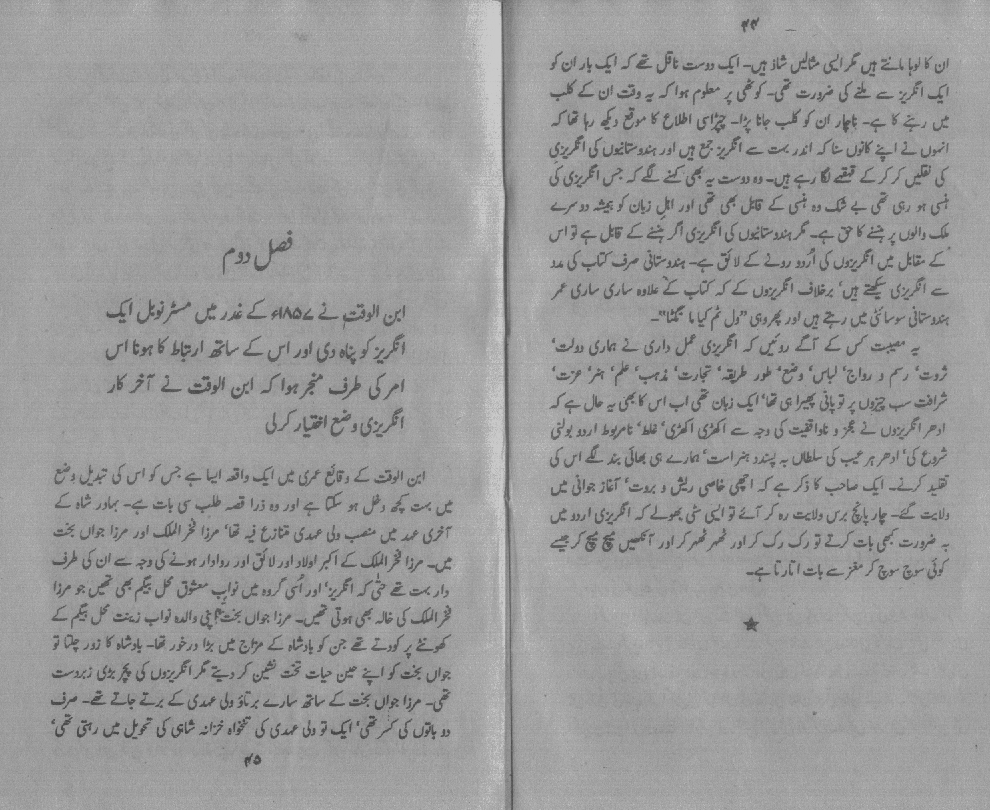 ۴۴
ان کا لوہا مانتے ہیں مگر ایسی مثالیں شاذ ہیں۔ ایک دوست ناقل تھے کہ ایک بار ان کو
ایک انگریز سے ملنے کی ضرورت تھی۔ کوٹھی پر معلوم ہوا کہ یہ وقت ان کے کلب
میں رہنے کا ہے۔ ناچار ان کو کلب جانا پڑا۔ چپڑاسی اطلاع کا موقع دیکھ رہا تھا کہ
انہوں نے اپنے کانوں سنا کہ اندر بہت سے انگریز جمع ہیں اور ہندوستانیوں کی انگریزی
کی نقلیں کر کر کے قہقہے لگا رہے ہیں۔ وہ دوست یہ بھی کہنے لگے کہ جس انگریزی کی
ہنسی ہو رہی تھی بے شک وہ ہنسی کے قابل بھی تھی اور اہل زبان کو ہمیشہ دوسرے
ملک والوں پر ہنسنے کا حق ہے۔ مگر ہندوستانیوں کی انگریزی اگر ہنسنے کے قابل ہے تو اس
کے مقابل میں انگریزوں کی اُردو رونے کے لائق ہے۔ ہندوستانی صرف کتاب کی مدد
سے انگریزی سیکھتے ہیں‘ برخلاف انگریزوں کے کہ کتاب کے علاوہ ساری ساری عمر
ہندوستانی سوسائٹی میں رہتے ہیں اور پھر وہی ”ول ٹم کیا مانگٹا“۔
یہ مصیبت کس کے آگے روئیں کہ انگریزی عمل داری نے ہماری دولت‘
ثروت‘ رسم و رواج‘ لباس‘ وضع‘ طور طریقہ‘ تجارت‘ مذہب‘ علم‘ ہنر‘ عزت‘
شرافت سب چیزوں پر تو پانی پھیرا ہی تھا‘ ایک زبان تھی اب اس کا بھی یہ حال ہے کہ
ادھر انگریزوں نے عجز و ناواقفیت کی وجہ سے اکھڑی اکھڑی‘ غلط‘ نامربوط اردو بولنی
شروع کی‘ ادھر ہر عیب کی سلطاں بہ پسندد ہنر است‘ ہمارے ہی بھائی بند لگے اس کی
تقلید کرنے۔ ایک صاحب کا ذکر ہے کہ اچھی خاصی ریش و بروت‘ آغاز جوانی میں
ولایت گئے۔ چار پانچ برس ولایت رہ کر آئے تو ایسی سٹی بھولے کہ انگریزی اردو میں
بہ ضرورت کبھی بات کرتے تو رک رک کر اور ٹھہر ٹھہر کر اور آنکھیں میچ میچ کر جیسے
کوئی سوچ سوچ کر مغز سے بات اتارتا ہے۔
فصل دوم
ابن الوقت نے ۱۸۵۷ء کے غدر میں مسٹر نوبل ایک
انگریز کو پناہ دی اور اس کے ساتھ ارتباط کا ہونا اس
امر کی طرف منجر ہوا کہ ابن الوقت نے آخر کار
انگریزی وضع اختیار کر لی
ابن الوقت کے وقائع عمری میں ایک واقعہ ایسا ہے جس کو اس کی تبدیل وضع
میں بہت کچھ دخل ہو سکتا ہے اور وہ ذرا قصہ طلب سی بات ہے۔ بہادر شاہ کے
آخری عہد میں منصب ولی عہدی متنازع فیہ تھا‘ مرزا فخر الملک اور مرزا جواں بخت
میں۔ مرزا فخر الملک کے اکبر اولاد اور لائق اور روادار ہونے کی وجہ سے ان کی طرف
دار بہت تھے حتیٰ کہ انگریز‘ اور اُسی گروہ میں نواب معشوق محل بیگم بھی تھیں جو مرزا
فخر الملک کی خالہ بھی ہوتی تھیں۔ مرزا جواں بخت اپنی والدہ نواب زینت محل بیگم کے
کھونٹے پر کودتے تھے جن کو بادشاہ کے مزاج میں بڑا درخور تھا۔ بادشاہ کا زور چلتا تو
جواں بخت کو اپنے حین حیات تخت نشین کر دیتے مگر انگریزوں کی پچر بڑی زبردست
تھی۔ مرزا جواں بخت کے ساتھ سارے برتاؤ ولی عہدی کے برتے جاتے تھے۔ صرف
دو باتوں کی کسر تھی‘ ایک تو ولی عہدی کی تنخواہ خزانہ شاہی کی تحویل میں رہتی تھی‘
۴۵